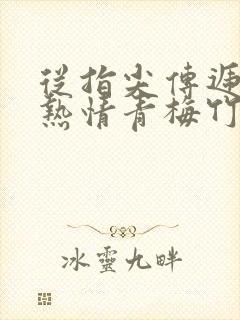 從指尖傳遞
熱情青梅竹
冰靈九畔